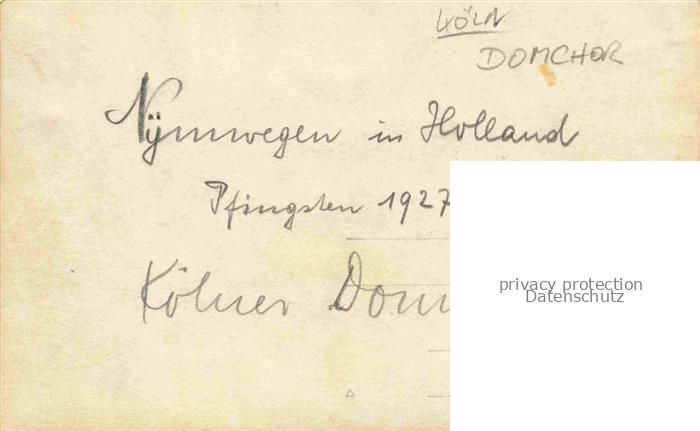 KÖLN
DOMCHOR
Nÿmwegen in Holland
Pfingsten 1927
Kölner Dom
privacy protection
Datenschutz